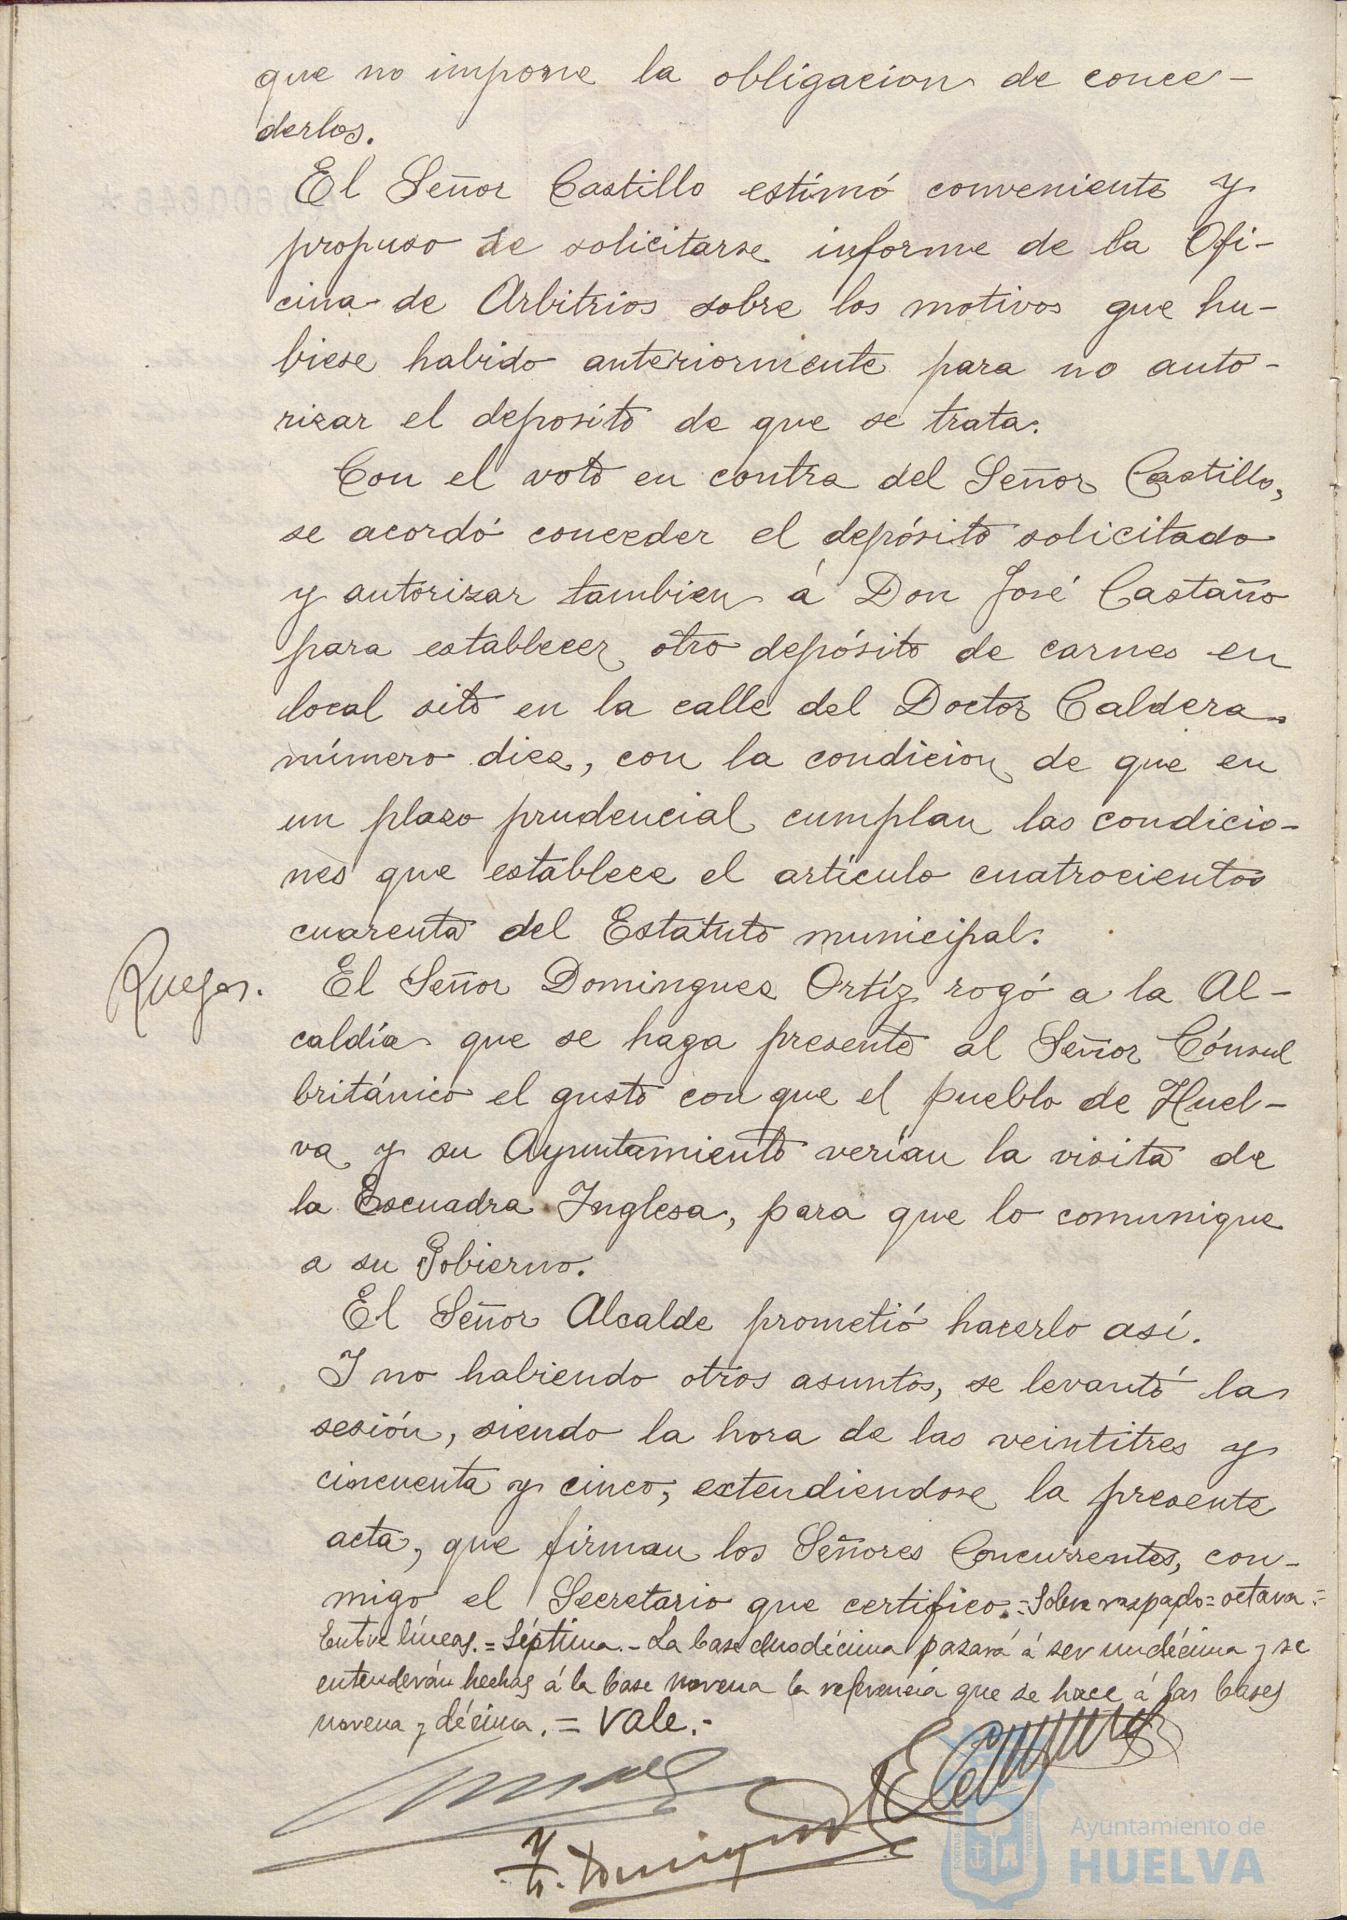 que no impone la obligacion de conce-
derlos.
El Señor Castillo estimó conveniente y
propuso se solicitarse informe de la Ofi-
cina de Arbitrios sobre los motivos que hu-
biese habido anteriormente para no auto-
rizar el deposito de que se trata.
Con el voto en contra del Señor Castillo,
se acordó conceder el depósito solicitado
y autorizar tambien á Don José Castaño
para establecer otro depósito de carnes en
local sito en la calle del Doctor Caldera
número diez, con la condicion de que en
un plazo prudencial cumplan las condicio-
nes que establece el artículo cuatrocientos
cuarenta del Estatuto municipal.
Ruegos.
El Señor Dominguez Ortíz rogó a la Al-
caldía que se haga presente al Señor Cónsul
británico el gusto con que el pueblo de Huel-
va y su Ayuntamiento verían la visita de
la Escuadra Inglesa, para que lo comunique
a su Gobierno.
El Señor Alcalde prometió hacerlo así.
Y no habiendo otros asuntos, se levantó la
sesión, siendo la hora de las veintitres y
cincuenta y cinco, extendiendose la presente
acta, que firman los Señores Concurrentes, con-
migo el Secretario que certifico.=Sobre raspado=octava.=
Entre líneas.=Séptima.-La base duodécima pasará á ser undécima y se
entenderán hechas á la base novena la referencia que se hace á las bases
novena y décima.=Vale.-
Ayuntamiento de
HUELVA